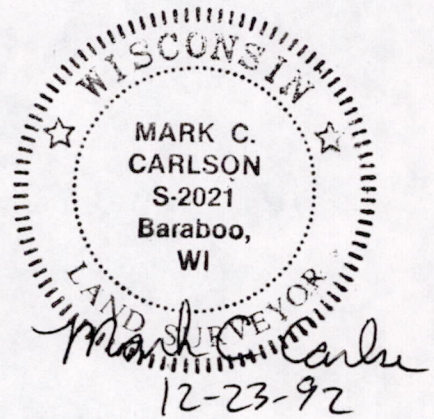 WISCONSIN
MARK C.
CARLSON
S-2021
Baraboo,
WI
LAND SURVEYOR
Mark C. Carlson
12-23-92